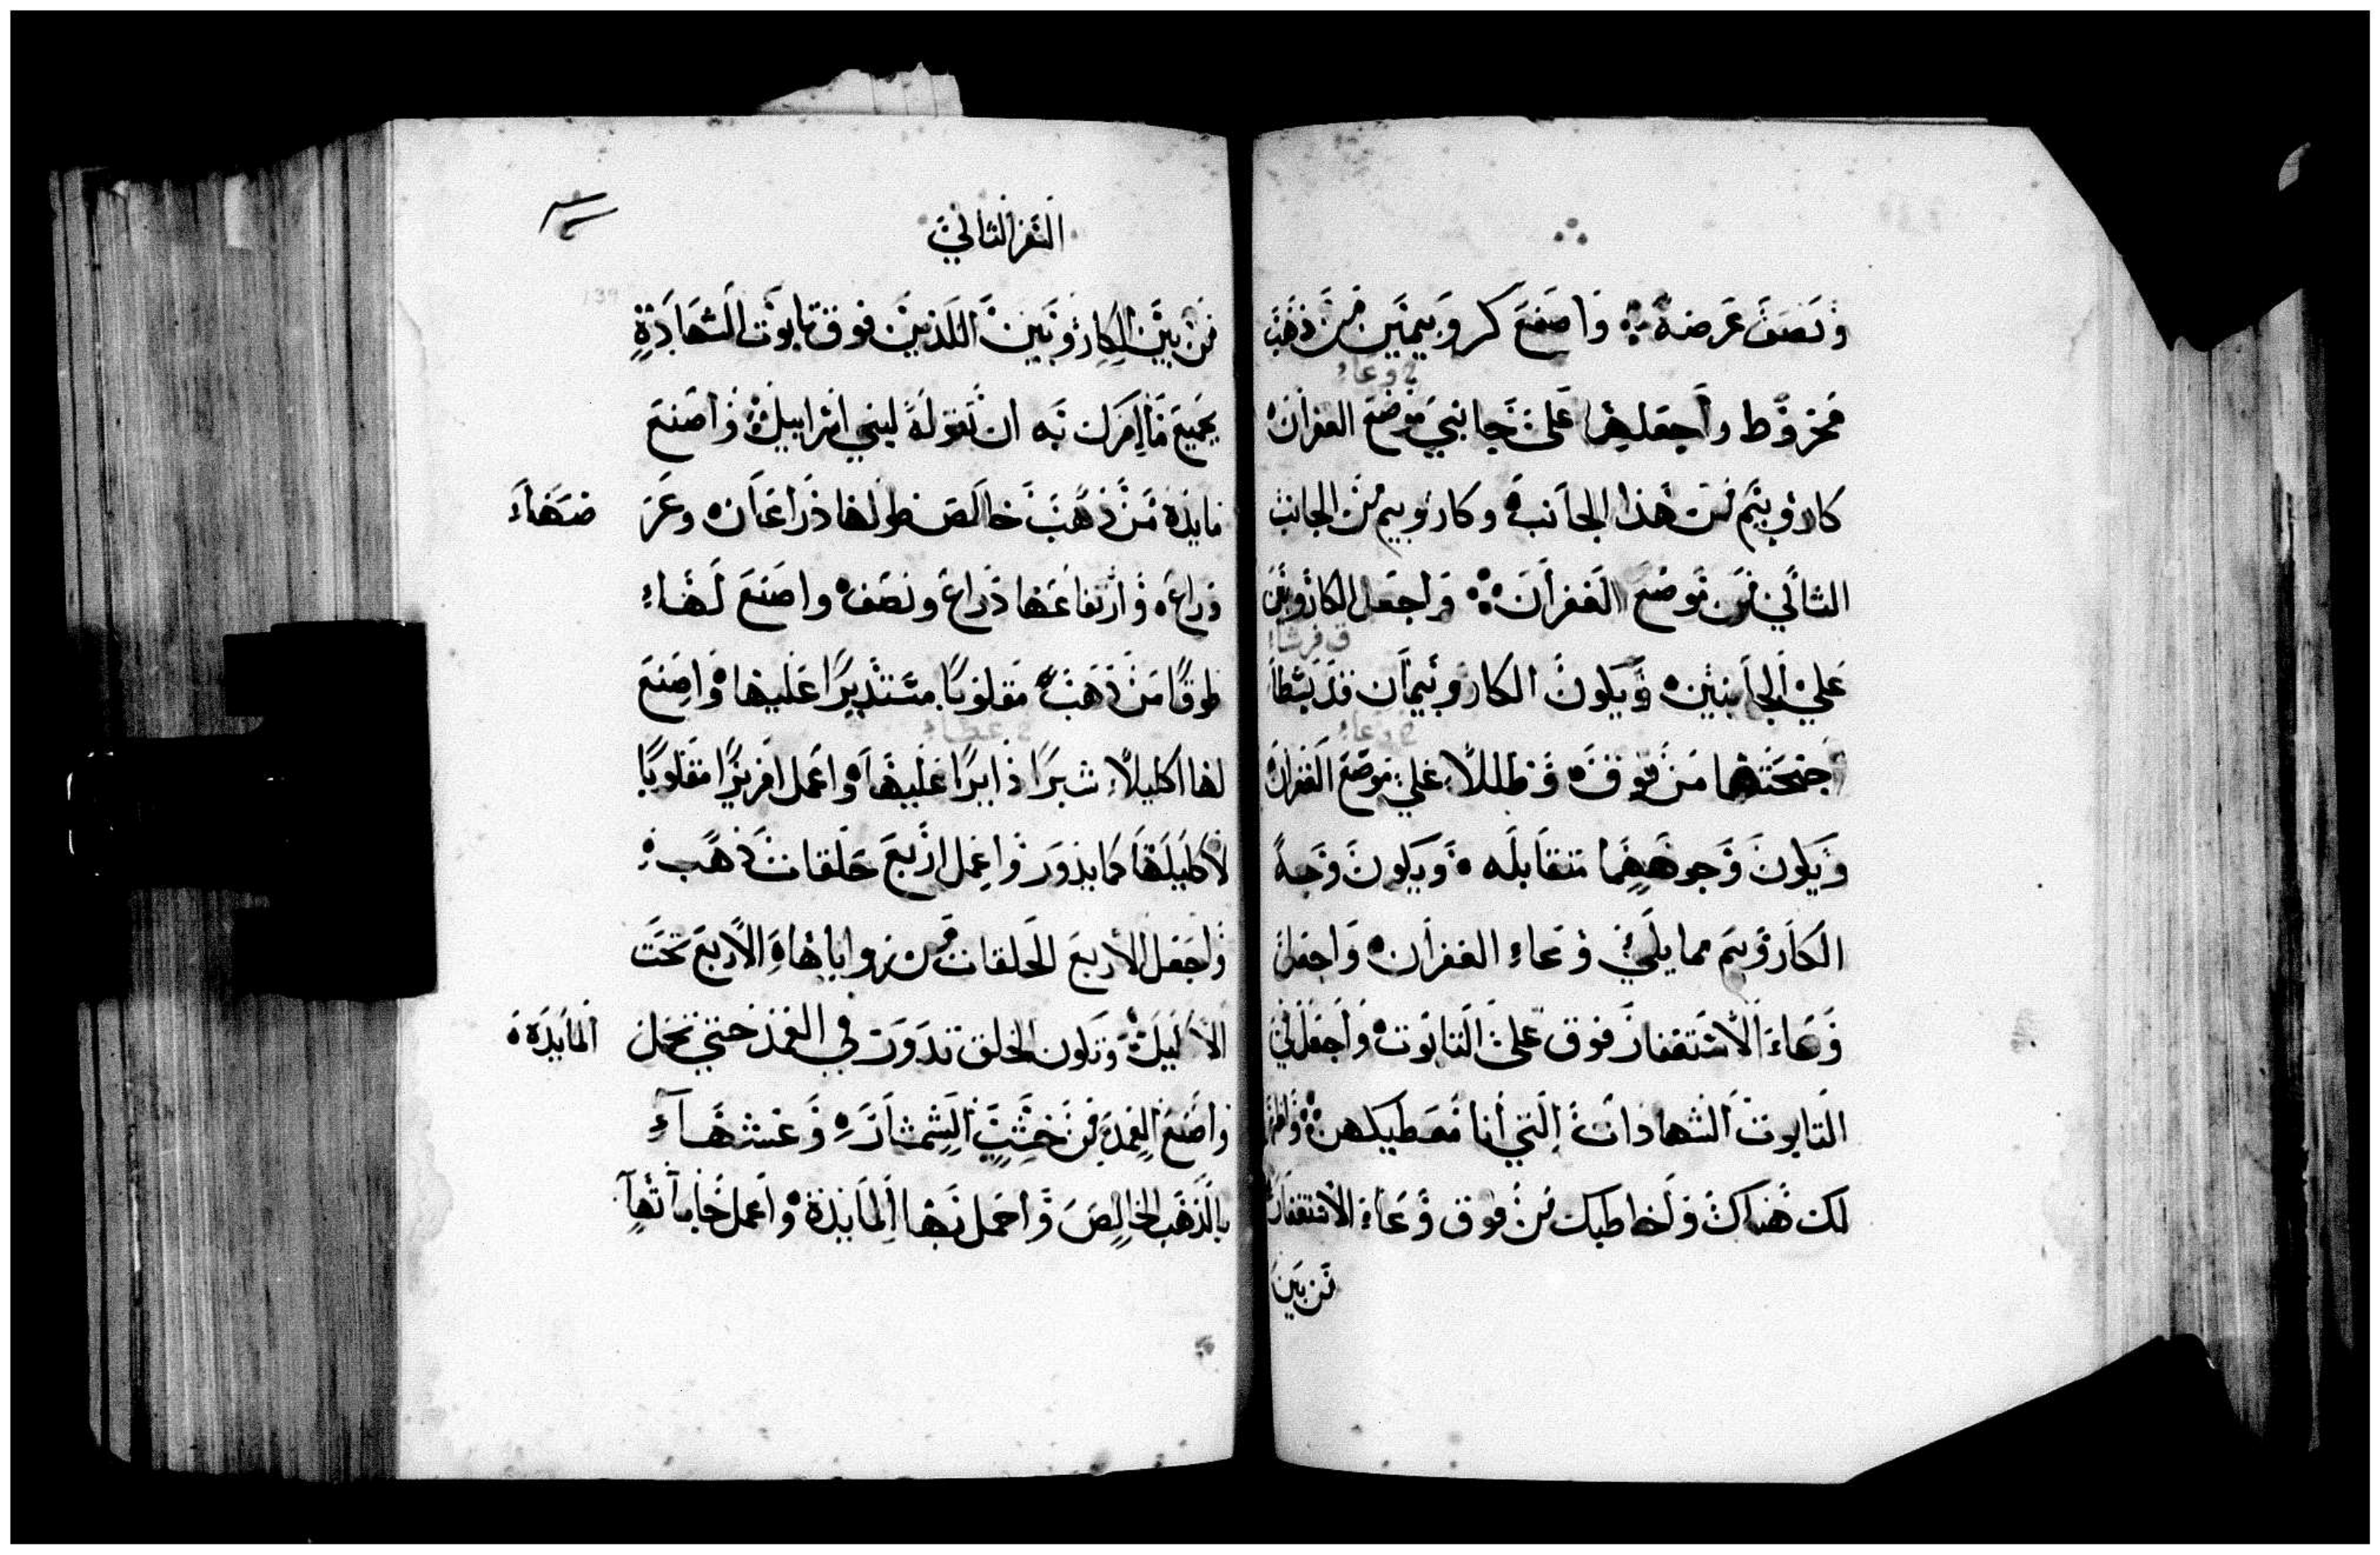 ونصف عرضه واصنع كروبيمين من ذهب
في وعاء
مخروط واجعلهما على جانبي موضع الغفران
كاروبيم من هذا الجانب وكاروبيم من الجانب
الثاني من موضع الغفران واجعل الكاروبين
ق فرشا
علي الجانبين ويكون الكاروبيمان قد بسطا
في وعاء
اجنحتهما من فوق وظللا علي موضع الغفران
ويكون وجوههما متقابله ويكون وجه
الكاروبيم مما يلي وعاء الغفران واجعل
وعاء الاستغفار فوق على التابوت واجعل في
التابوت الشهادات التي انا معطيكهن
لك هناك واخاطبك من فوق وعاء الاستغفار
من بين
السفر الثاني
من بين الكاروبين اللذين فوق تابوت الشهادة
بجميع ما امرك به ان تقوله لبني اسراييل واصنع
مايدة من ذهب خالص طولها ذراعان وعر ضهاء
ذراع وارتفاعها ذراع ونصف واصنع لهاء
طوقا من ذهب مقلوبا مستديرا عليها واصنع
لها اكليلا شبرا دايرا عليها واعمل افريزا مقلوبا
لاكليلها كما يدور واعمل اربع حلقات ذهب
واجعل الاربع الحلقات من زواياها الاربع تحت
الاكليل وتكون الحلق تدور في العمد حتي تحمل المايدة
واصنع العمد من خشب الشمشار وغشهاء
بالذهب الخالص واحمل بها المايدة واعمل جاماتها